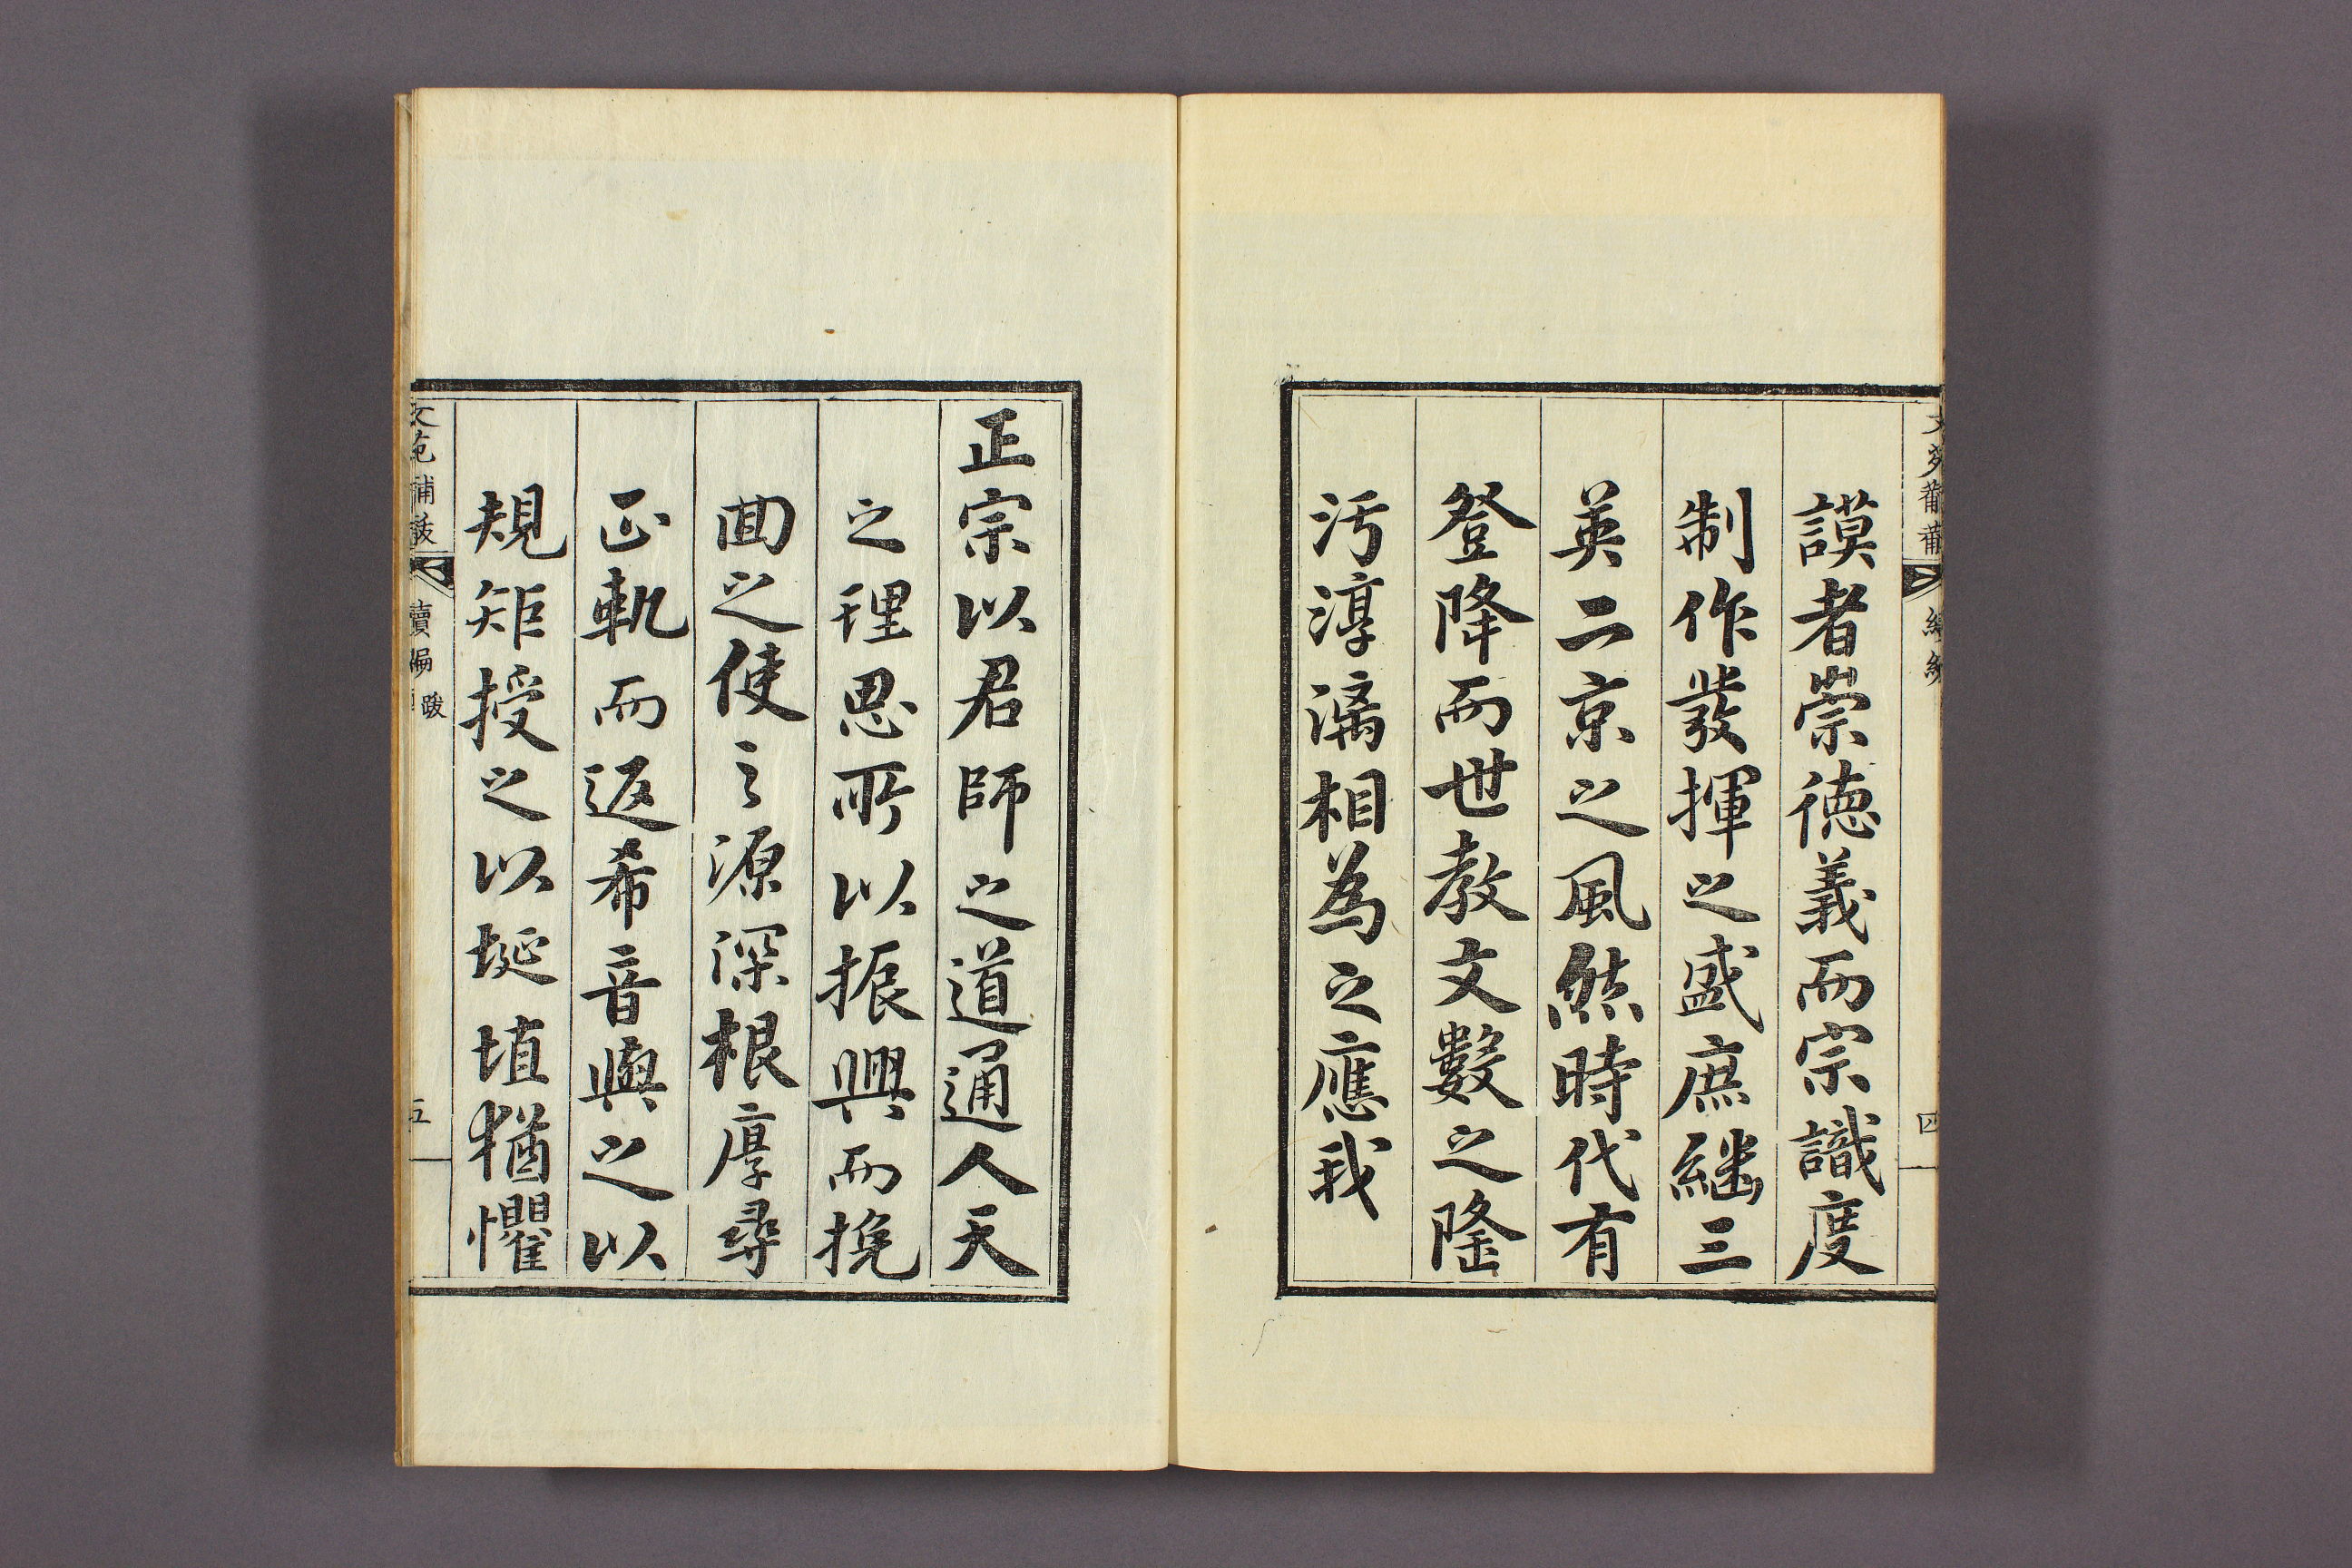 謨者崇德義而宗識度
制作發揮之盛庶繼三
英二京之風然時代有
登降而世教文數之隆
污淳漓相為之應我
正宗以君師之道通人天
之理思所以振興而挽
回之使之源深根厚尋
正軌而返希音與之以
規矩授之以埏埴猶懼
五